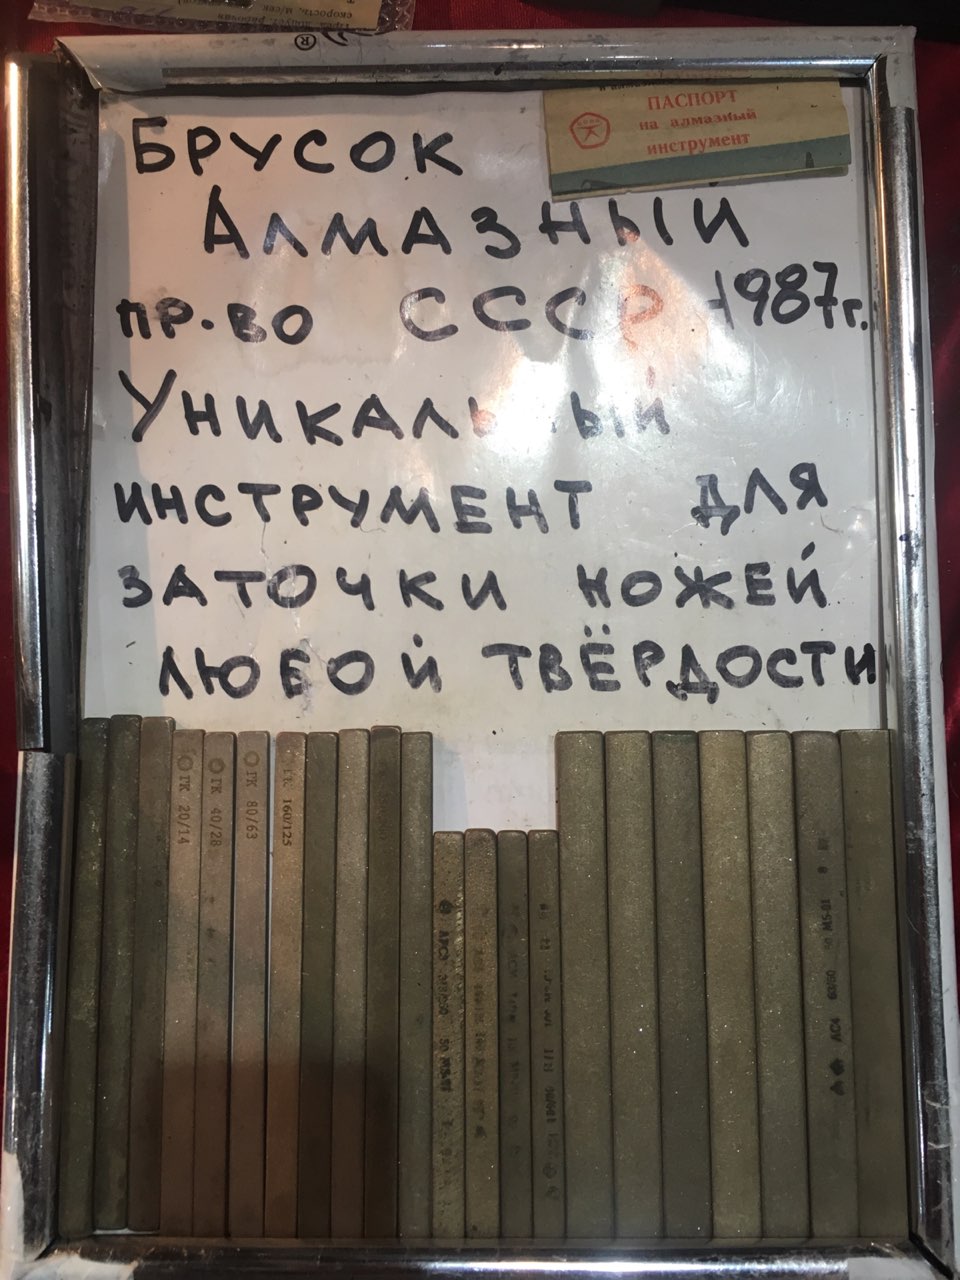 скорость, м/сек
Пред. допуст. рабочая
®
ПАСПОРТ
на алмазный
инструмент
БРУСОК
АЛМАЗНЫЙ
ПР-ВО СССР 1987г.
УНИКАЛЬНЫЙ
ИНСТРУМЕНТ ДЛЯ
ЗАТОЧКИ НОЖЕЙ
ЛЮБОЙ ТВЁРДОСТИ
ГК 20/14
ГК 40/28
ГК 80/63
ГК 160/125
АС4 MS-01